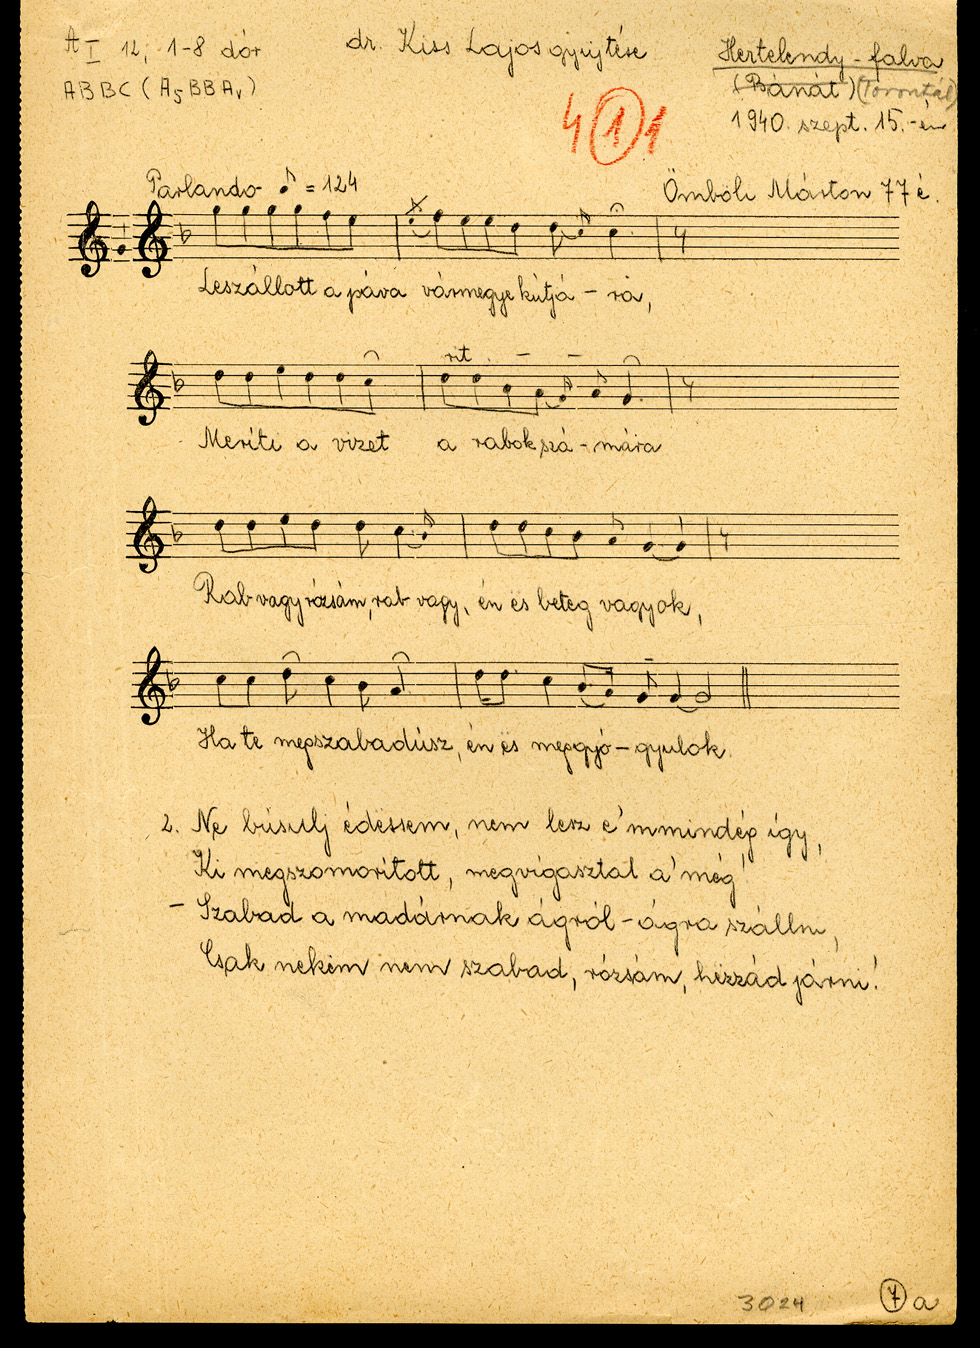 A I 12; 1-8 dór
dr. Kiss Lajos gyűjtése
Hertelendy-falva
ABBC (A5BBAv)
(Bánát) (Torontál)
4 1 1
1940. szept. 15.-én
Parlando ♪ = 124
Ömböli Márton 77 é.
Leszállott a páva vármegye kútjá - ra,
rit.
Meríti a vizet a rabok szá - mára
Rab vagy rózsám, rab vagy, én es beteg vagyok,
Ha te megszabadúsz, én ës meggyó - gyulok.
2. Ne búsulj édëssem, nem lesz e' mmindég így,
Ki megszomorított, megvigasztal a' még!
- Szabad a madárnak ágról-ágra szállni,
Csak nekëm nem szabad, rózsám, hëzzád járni!
3024
7 a